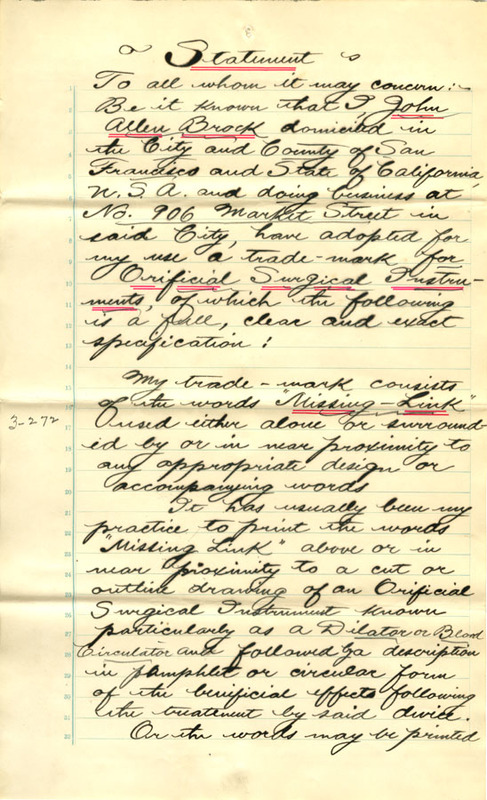 Statement
To all whom it may concern:-
Be it known that I, John
Allen Brock domiciled in
the City and County of San
Francisco and State of California,
U.S.A. and doing business at
No. 906 Market Street in
said City, have adopted for
my use a trade-mark for
Orificial Surgical Instru-
ments, of which the following
is a full, clear and exact
specification:
My trade-mark consists
of the words "Missing-Link"
3-272
used either alone or surround-
ed by or in near proximity to
any appropriate design or
accompanying words
It has usually been my
practice to print the words
"Missing Link" above or in
near proximity to a cut or
outline drawing of an Orificial
Surgical Instrument known
particularly as a Dilator or Blood
Circulator and followed by a description
in pamphlet or circular form
of the beneficial effects following
the treatment by said device.
Or the words may be printed